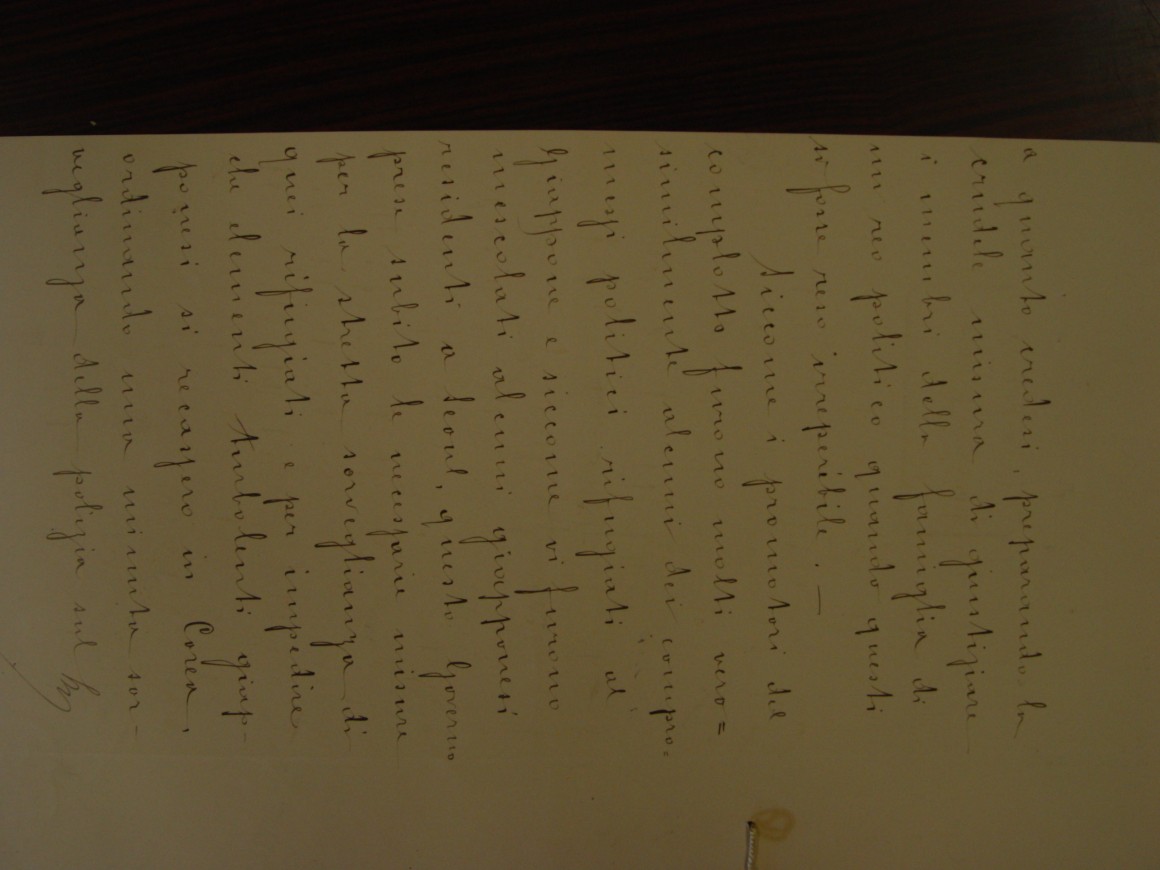 a quanto credesi, preparando la
crudele misura di giustiziare
i membri della famiglia di
un reo politico quando questi
si fosse reso irreperibile. —
Siccome i promotori del
complotto furono molti vero=
similmente alcuni dei compro=
messi politici rifugiati al
Giappone e siccome vi furono
mescolati alcuni giapponesi
residenti a Seoul, questo Governo
prese subito le necessarie misure
per la stretta sorveglianza di
quei rifugiati e per impedire
che elementi turbolenti giap-
ponesi si recassero in Corea,
ordinando una minuta sor-
veglianza della polizia sul